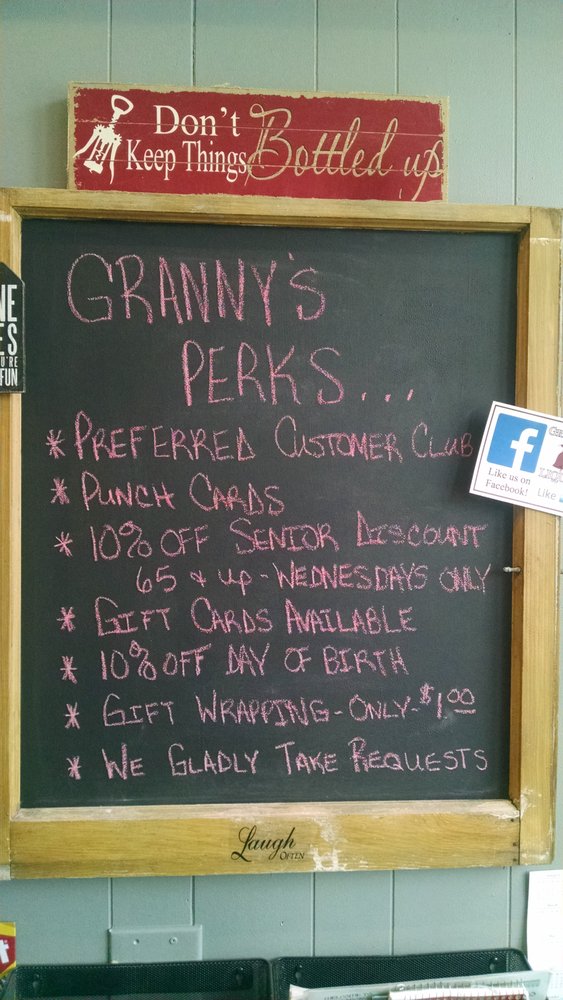 Don't
Keep Things Bottled up
GRANNY'S
PERKS...
* PREFERRED CUSTOMER CLUB
* PUNCH CARDS
* 10% OFF SENIOR DISCOUNT
65 & up - WEDNESDAYS ONLY
* GIFT CARDS AVAILABLE
* 10% OFF DAY OF BIRTH
* GIFT WRAPPING - ONLY - $1.00
* WE GLADLY TAKE REQUESTS
Laugh
OFTEN
NE
ES
U'RE
FUN
f
Like us on
Facebook!
Like